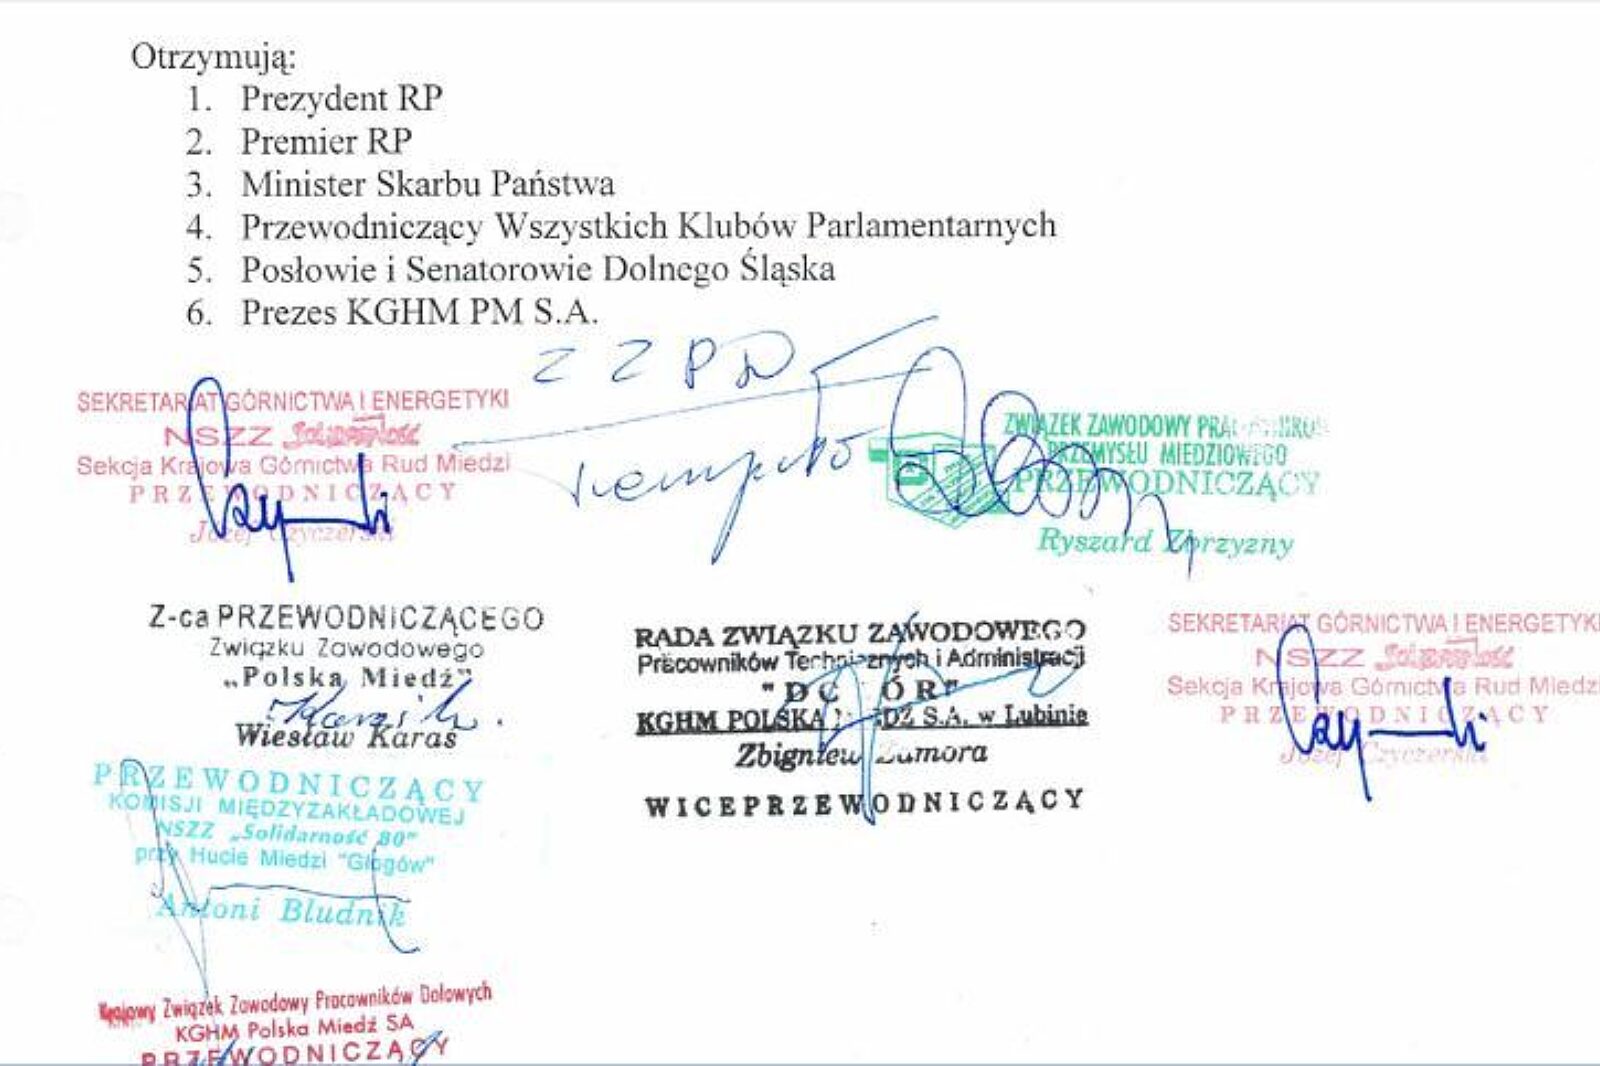 Otrzymują:
1. Prezydent RP
2. Premier RP
3. Minister Skarbu Państwa
4. Przewodniczący Wszystkich Klubów Parlamentarnych
5. Posłowie i Senatorowie Dolnego Śląska
6. Prezes KGHM PM S.A.
Z Z P D
SEKRETARIAT GÓRNICTWA I ENERGETYKI
NSZZ Solidarność
Sekcja Krajowa Górnictwa Rud Miedzi
PRZEWODNICZĄCY
Józef Czyczerski
ZWIĄZEK ZAWODOWY
PRZEMYSŁU MIEDZIOWEGO
PRZEWODNICZĄCY
Ryszard Zbrzyzny
Z-ca PRZEWODNICZĄCEGO
Związku Zawodowego
„Polska Miedź"
Wiesław Karaś
RADA ZWIĄZKU ZAWODOWEGO
Pracowników Technicznych i Administracji
KGHM POLSKA MIEDŹ S.A. w Lubinie
Zbigniew Zamora
WICEPRZEWODNICZĄCY
SEKRETARIAT GÓRNICTWA I ENERGETYKI
NSZZ Solidarność
Sekcja Krajowa Górnictwa Rud Miedzi
PRZEWODNICZĄCY
Józef Czyczerski
PRZEWODNICZĄCY
KOMISJI MIĘDZYZAKŁADOWEJ
NSZZ „Solidarność 80"
przy Hucie Miedzi "Głogów"
Antoni Bludnik
Krajowy Związek Zawodowy Pracowników Dołowych
KGHM Polska Miedź SA
PRZEWODNICZĄCY